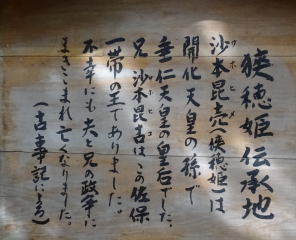 狹穂姫伝承地
サホヒメ
沙本毘売(狭穂姫)は
開化天皇の孫で
垂仁天皇の皇后でした。
兄沙本毘古はこの佐保
一帯の王でありました。
不幸にも夫と兄の政争に
まきこまれ亡くなりました。
(古事記による)